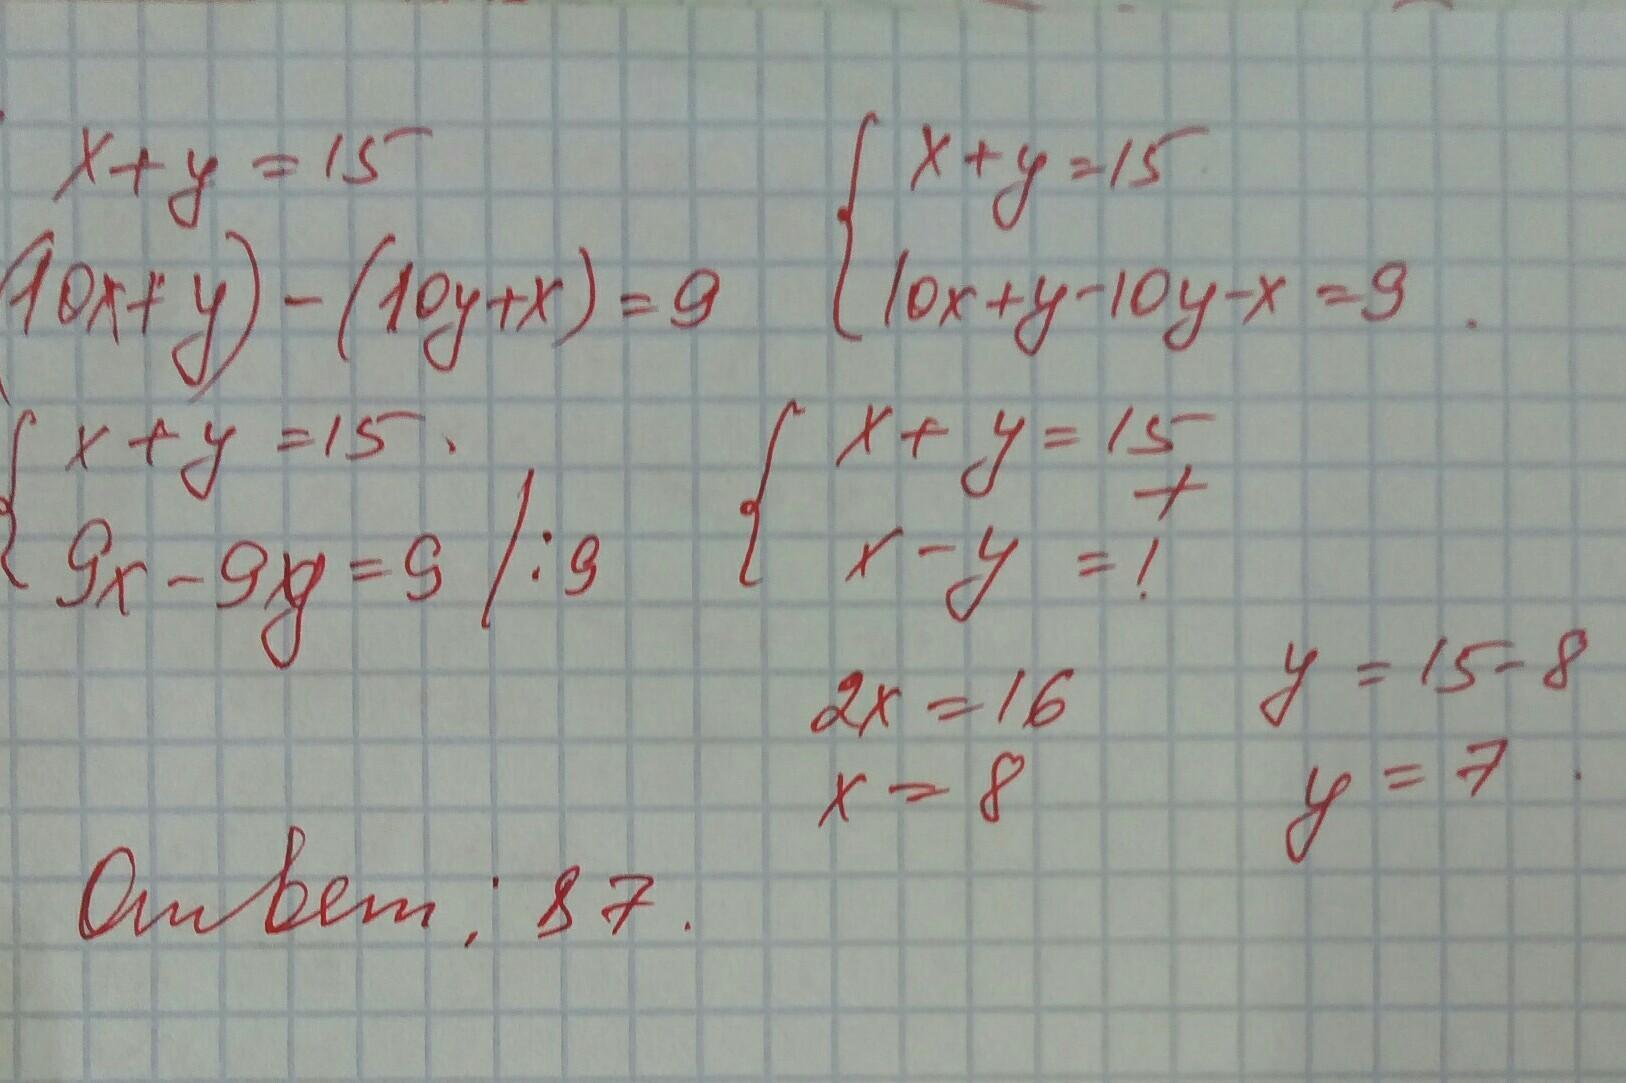 x + y = 15
(10x + y) - (10y + x) = 9
{ x + y = 15
10x + y - 10y - x = 9
{ x + y = 15
9x - 9y = 9 / : 9
{ x + y = 15
+
x - y = 1
2x = 16
x = 8
y = 15 - 8
y = 7
Ответ: 87.